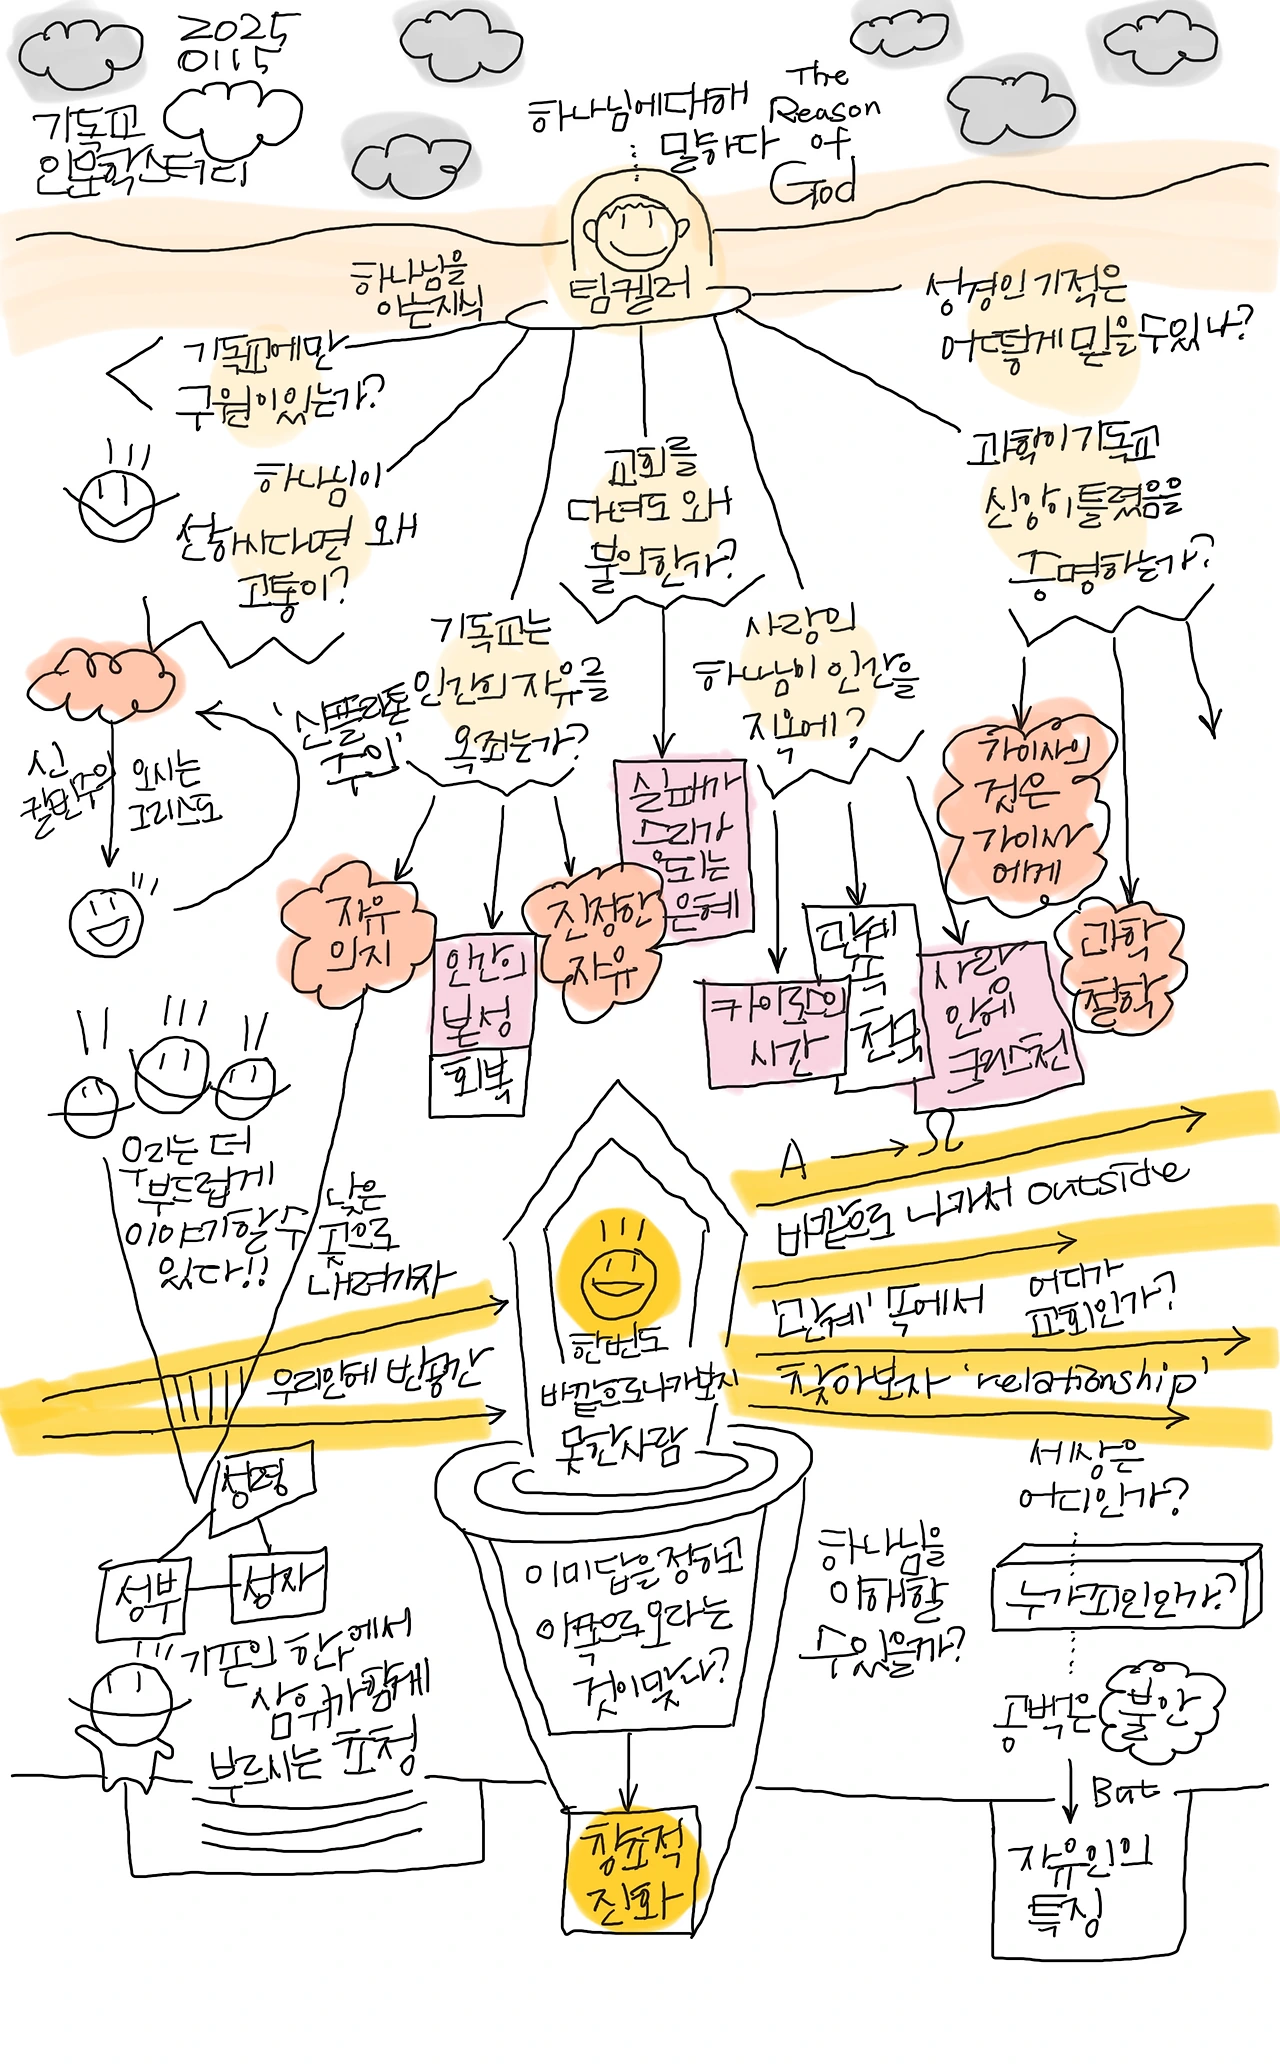 2025
0115
기독교
인문학스터디
하나님에대해
말하다
The
Reason
of
God
팀켈러
하나님을
아는지식
기독교에만
구원이있는가?
하나님이
선하시다면 왜
고통이?
교회를
다녀도 왜
불의한가?
성경인 기적은
어떻게 믿을수있나?
과학이 기독교
신앙이 틀렸음을
증명하는가?
기독교는
인간의 자유를
옥죄는가?
사랑의
하나님이 인간을
지옥에?
'신플라톤
주의'
신
칼빈주의
오시는
그리스도
자유
의지
인간의
본성
회복
진정한
자유
실패가
스러가
오히는
은혜
카이로스의
시간
관계
쪽
천로
사랑
안에
크리스천
가이사의
것은
가이사
에게
과학
철학
우리는 더
부드럽게
이야기할수
있다!!
낮은
곳으로
내려가자
우리안에 빈공간
한번도
바깥으로나가보지
못한사람
A
바깥으로 나가서 outside
'관계' 쪽에서
어디가
교회인가?
찾아보자 'relationship'
세상은
어디인가?
누가죄인인가?
공백은 불안
But
자유인의
특징
하나님을
이해할
수있을까?
이미답을정하고
이쪽으로오라는
것이맞나?
창조적
진화
성령
성부
성자
기쁨의 한나에서
삼위가함께
부르시는 초청